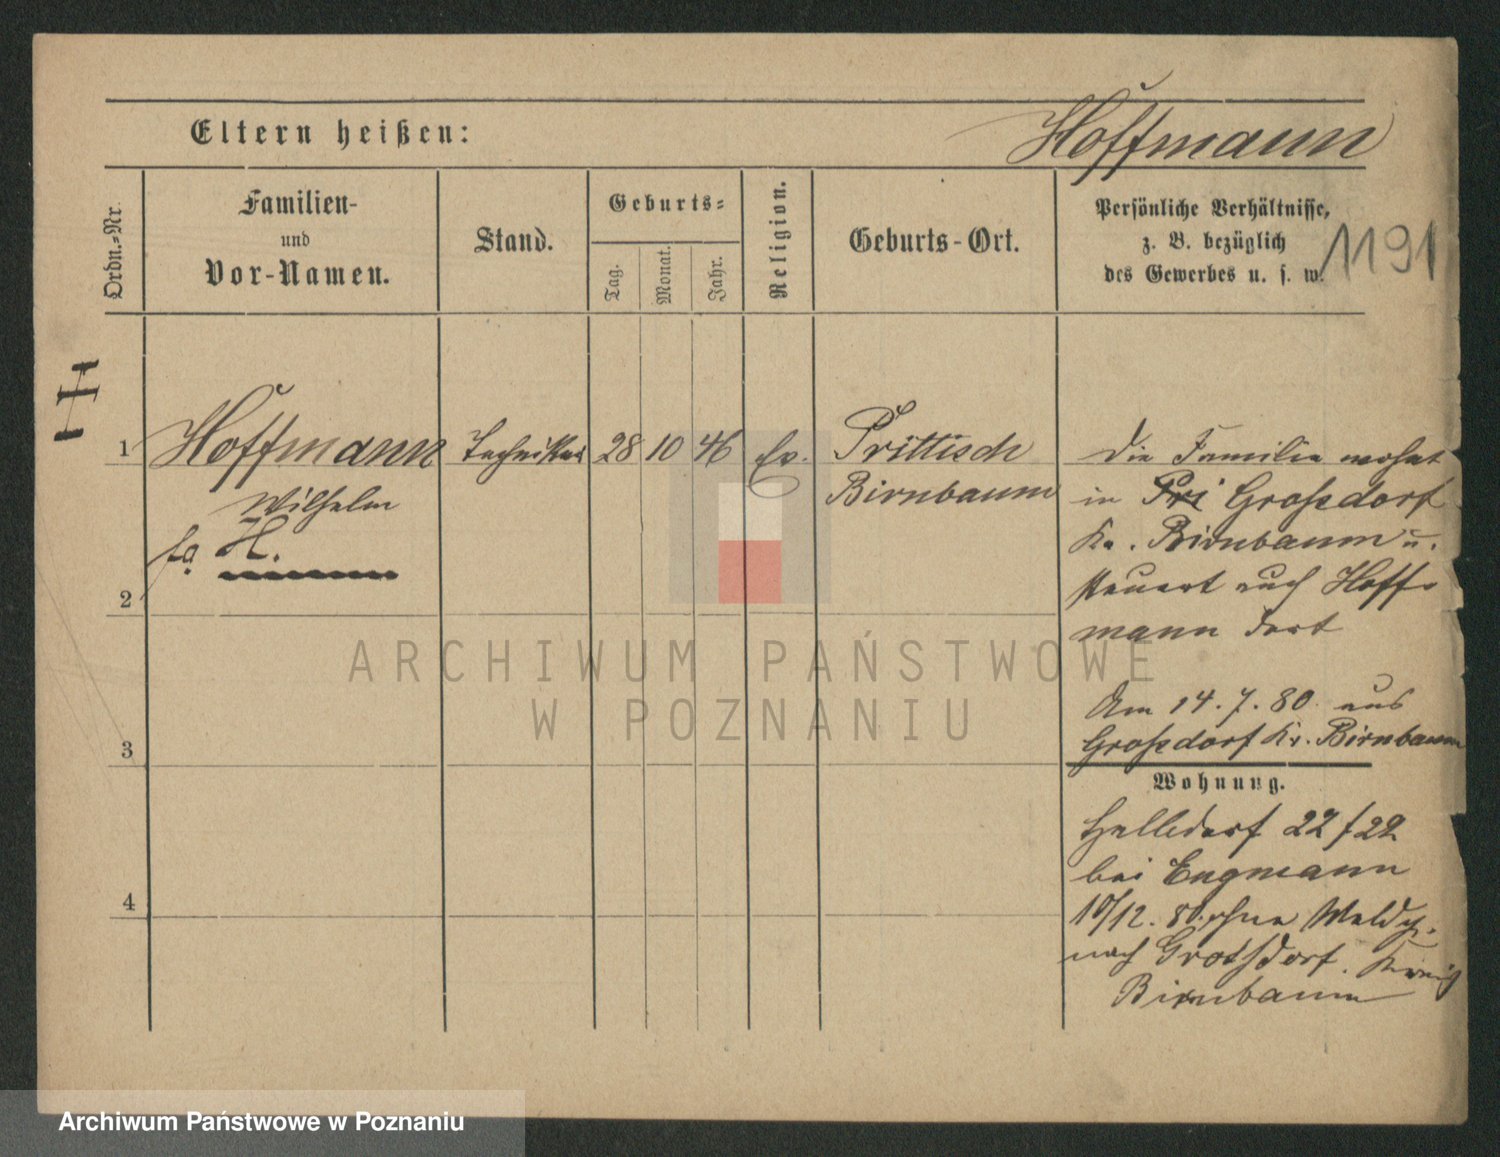 Eltern heißen:
Hoffmann
Ordn.-Nr.
Familien-
und
Vor-Namen.
Stand.
Geburts-
Tag.
Monat.
Jahr.
Religion.
Geburts-Ort.
Persönliche Verhältnisse,
z. B. bezüglich
des Gewerbes u. s. w.
1191
1
Hoffmann
Wilhelm
H.
Techniker
28
10
46
Ev.
Prittisch
Birnbaum
Die Familie wohnt
in Pri Großdorf
Kr. Birnbaum u.
steuert auch Hoff-
mann dort
Am 14.7.80 aus
Großdorf Kr. Birnbaum
2
3
4
Wohnung.
Halbdorf 22/22
bei Engmann
10/12. 80. ohne Meldg.
nach Grothdorf. Kreis
Birnbaum
ARCHIWUM PAŃSTWOWE
W POZNANIU
Archiwum Państwowe w Poznaniu